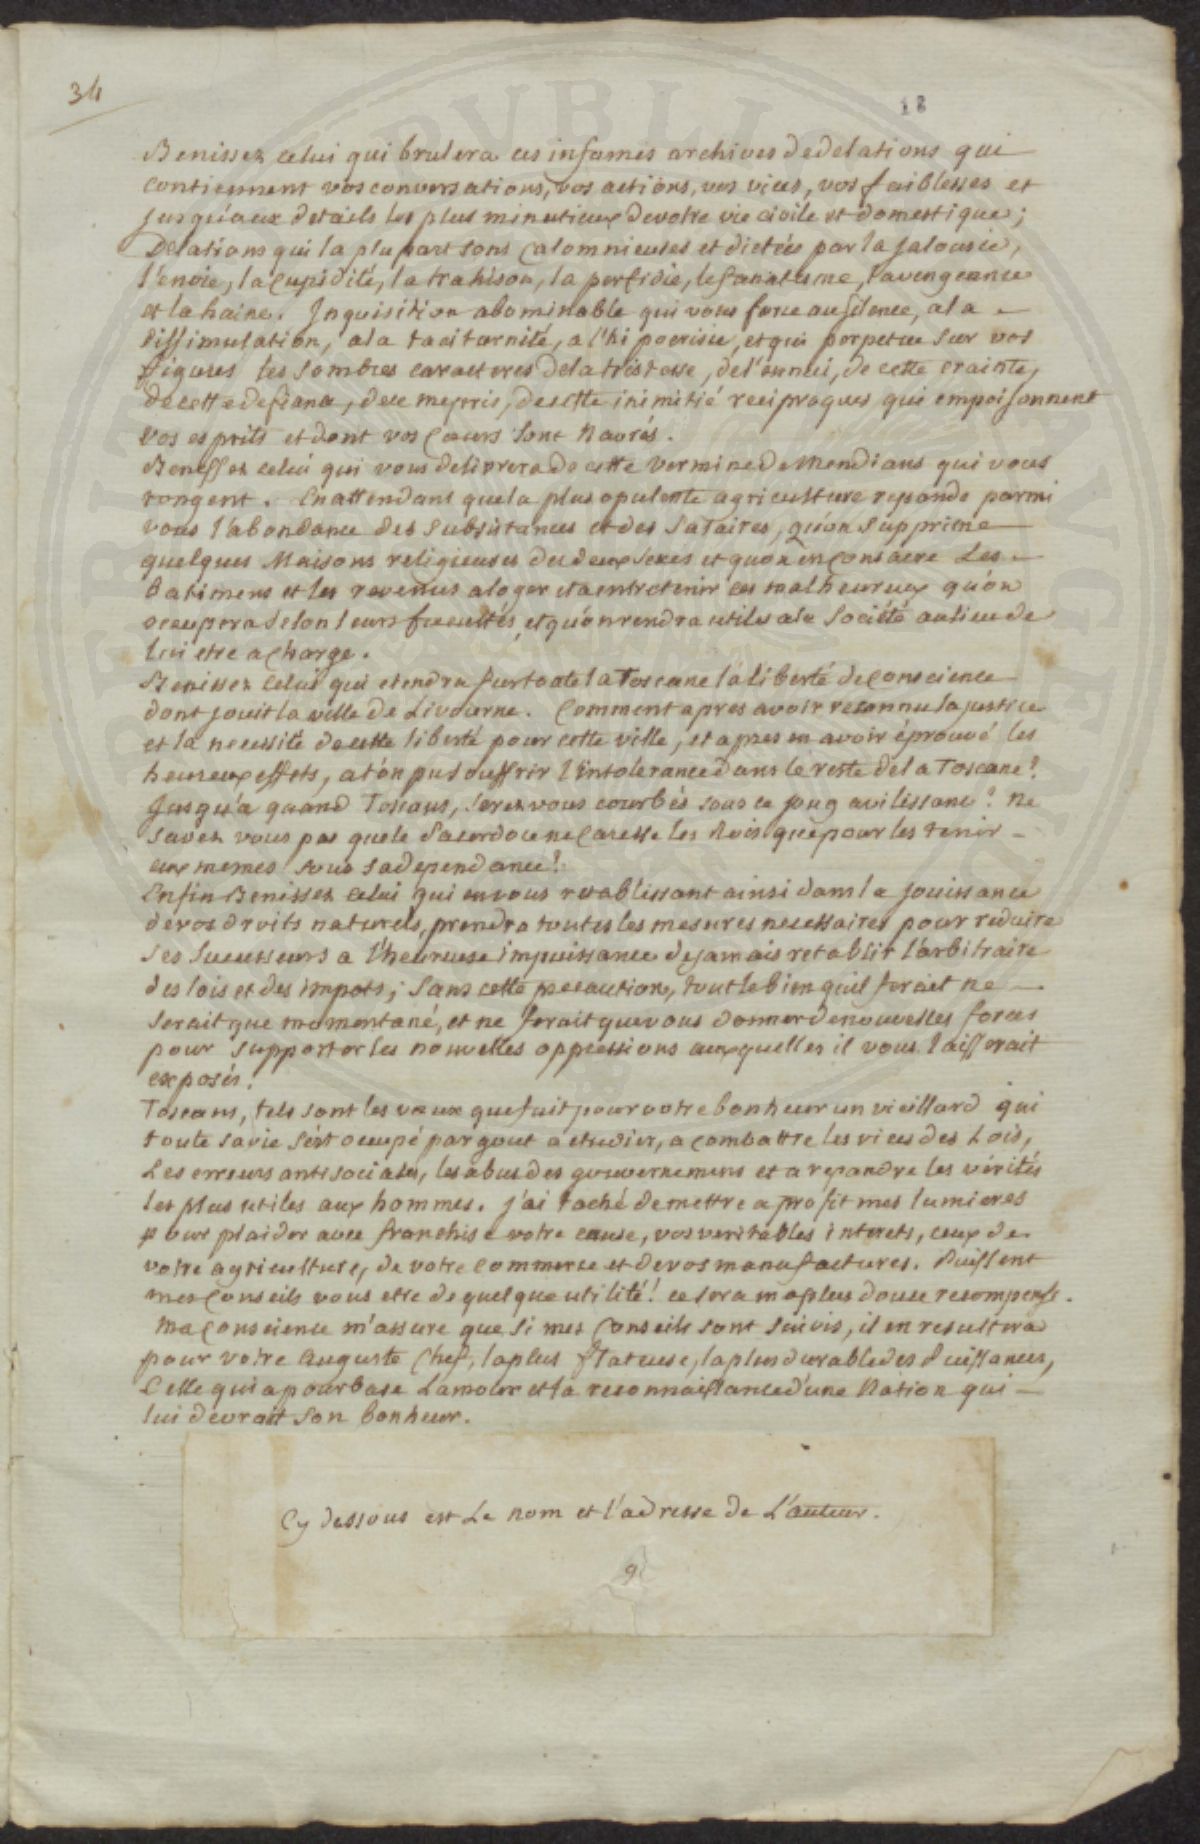 34
18
Benissez celui qui brulera ces infames archives de delations qui
contiennent vos conversations, vos actions, vos vices, vos faiblesses et
jusqu'aux details les plus minutieux de votre vie civile et domestique;
Delations qui la plupart sont calomnieuses et dictées par la jalousie,
l'envie, la cupidité, la trahison, la perfidie, le fanatisme, la vengeance
et la haine. Inquisition abominable qui vous force au silence, a la
dissimulation, a la taciturnité, a l'hipocrisie, et qui perpetue sur vos
figures les sombres caracteres de la tristesse, de l'ennui, de cette crainte,
de cette defiance, de ce mepris, de cette inimitié reciproques qui empoisonnent
vos esprits et dont vos coeurs sont navrés.
Benissez celui qui vous delivrera de cette vermine de Mendians qui vous
rongent. En attendant que la plus opulente agriculture reponde parmi
vous l'abondance des subsistances et des salaires, qu'on supprime
quelques Maisons religieuses des deux sexes et qu'on en consacre Les
batimens et les revenus a loger et a entretenir ces malheureux qu'on
occupera selon leurs facultés, et qu'on rendra utiles a la Société au lieu de
lui etre a charge.
Benissez celui qui etendra sur toute la Toscane la liberté de conscience
dont jouit la ville de Livourne. Comment apres avoir reconnu la justice
et la necessité de cette liberté pour cette ville, et apres en avoir éprouvé les
heureux effets, a t'on pu souffrir l'intolerance dans le reste de la Toscane?
Jusqu'a quand Toscans, serez vous courbés sous ce joug avilissant? Ne
savez vous pas que le Sacerdoce ne caresse les Rois que pour les tenir
eux memes sous sa dependance?
Enfin Benissez celui qui en vous retablissant ainsi dans la jouissance
de vos droits naturels, prendra toutes les mesures necessaires pour reduire
ses successeurs a l'heureuse impuissance de jamais retablir l'arbitraire
des lois et des impots; sans cette precaution, tout le bien qu'il ferait ne
serait que momentané, et ne ferait que vous donner de nouvelles forces
pour supporter les nouvelles oppressions auxquelles il vous laisserait
exposés.
Toscans, tels sont les voeux que fait pour votre bonheur un vieillard qui
toute sa vie s'est occupé par gout a etudier, a combattre les vices des Lois,
Les erreurs antisociales, les abus des gouvernemens et a repandre les vérités
les plus utiles aux hommes. j'ai taché de mettre a profit mes lumieres
pour plaider avec franchise votre cause, vos veritables interets, ceux de
votre agriculture, de votre commerce et de vos manufactures. Puissent
mes conseils vous etre de quelque utilité! ce sera ma plus douce recompense.
Ma conscience m'assure que si mes conseils sont suivis, il en resultera
pour votre Auguste Chef, la plus flateuse, la plus durable des Puissances,
Celle qui a pour base L'amour et la reconnaissance d'une Nation qui
lui devrait son bonheur.
Cy dessous est Le nom et l'adresse de L'auteur.
9